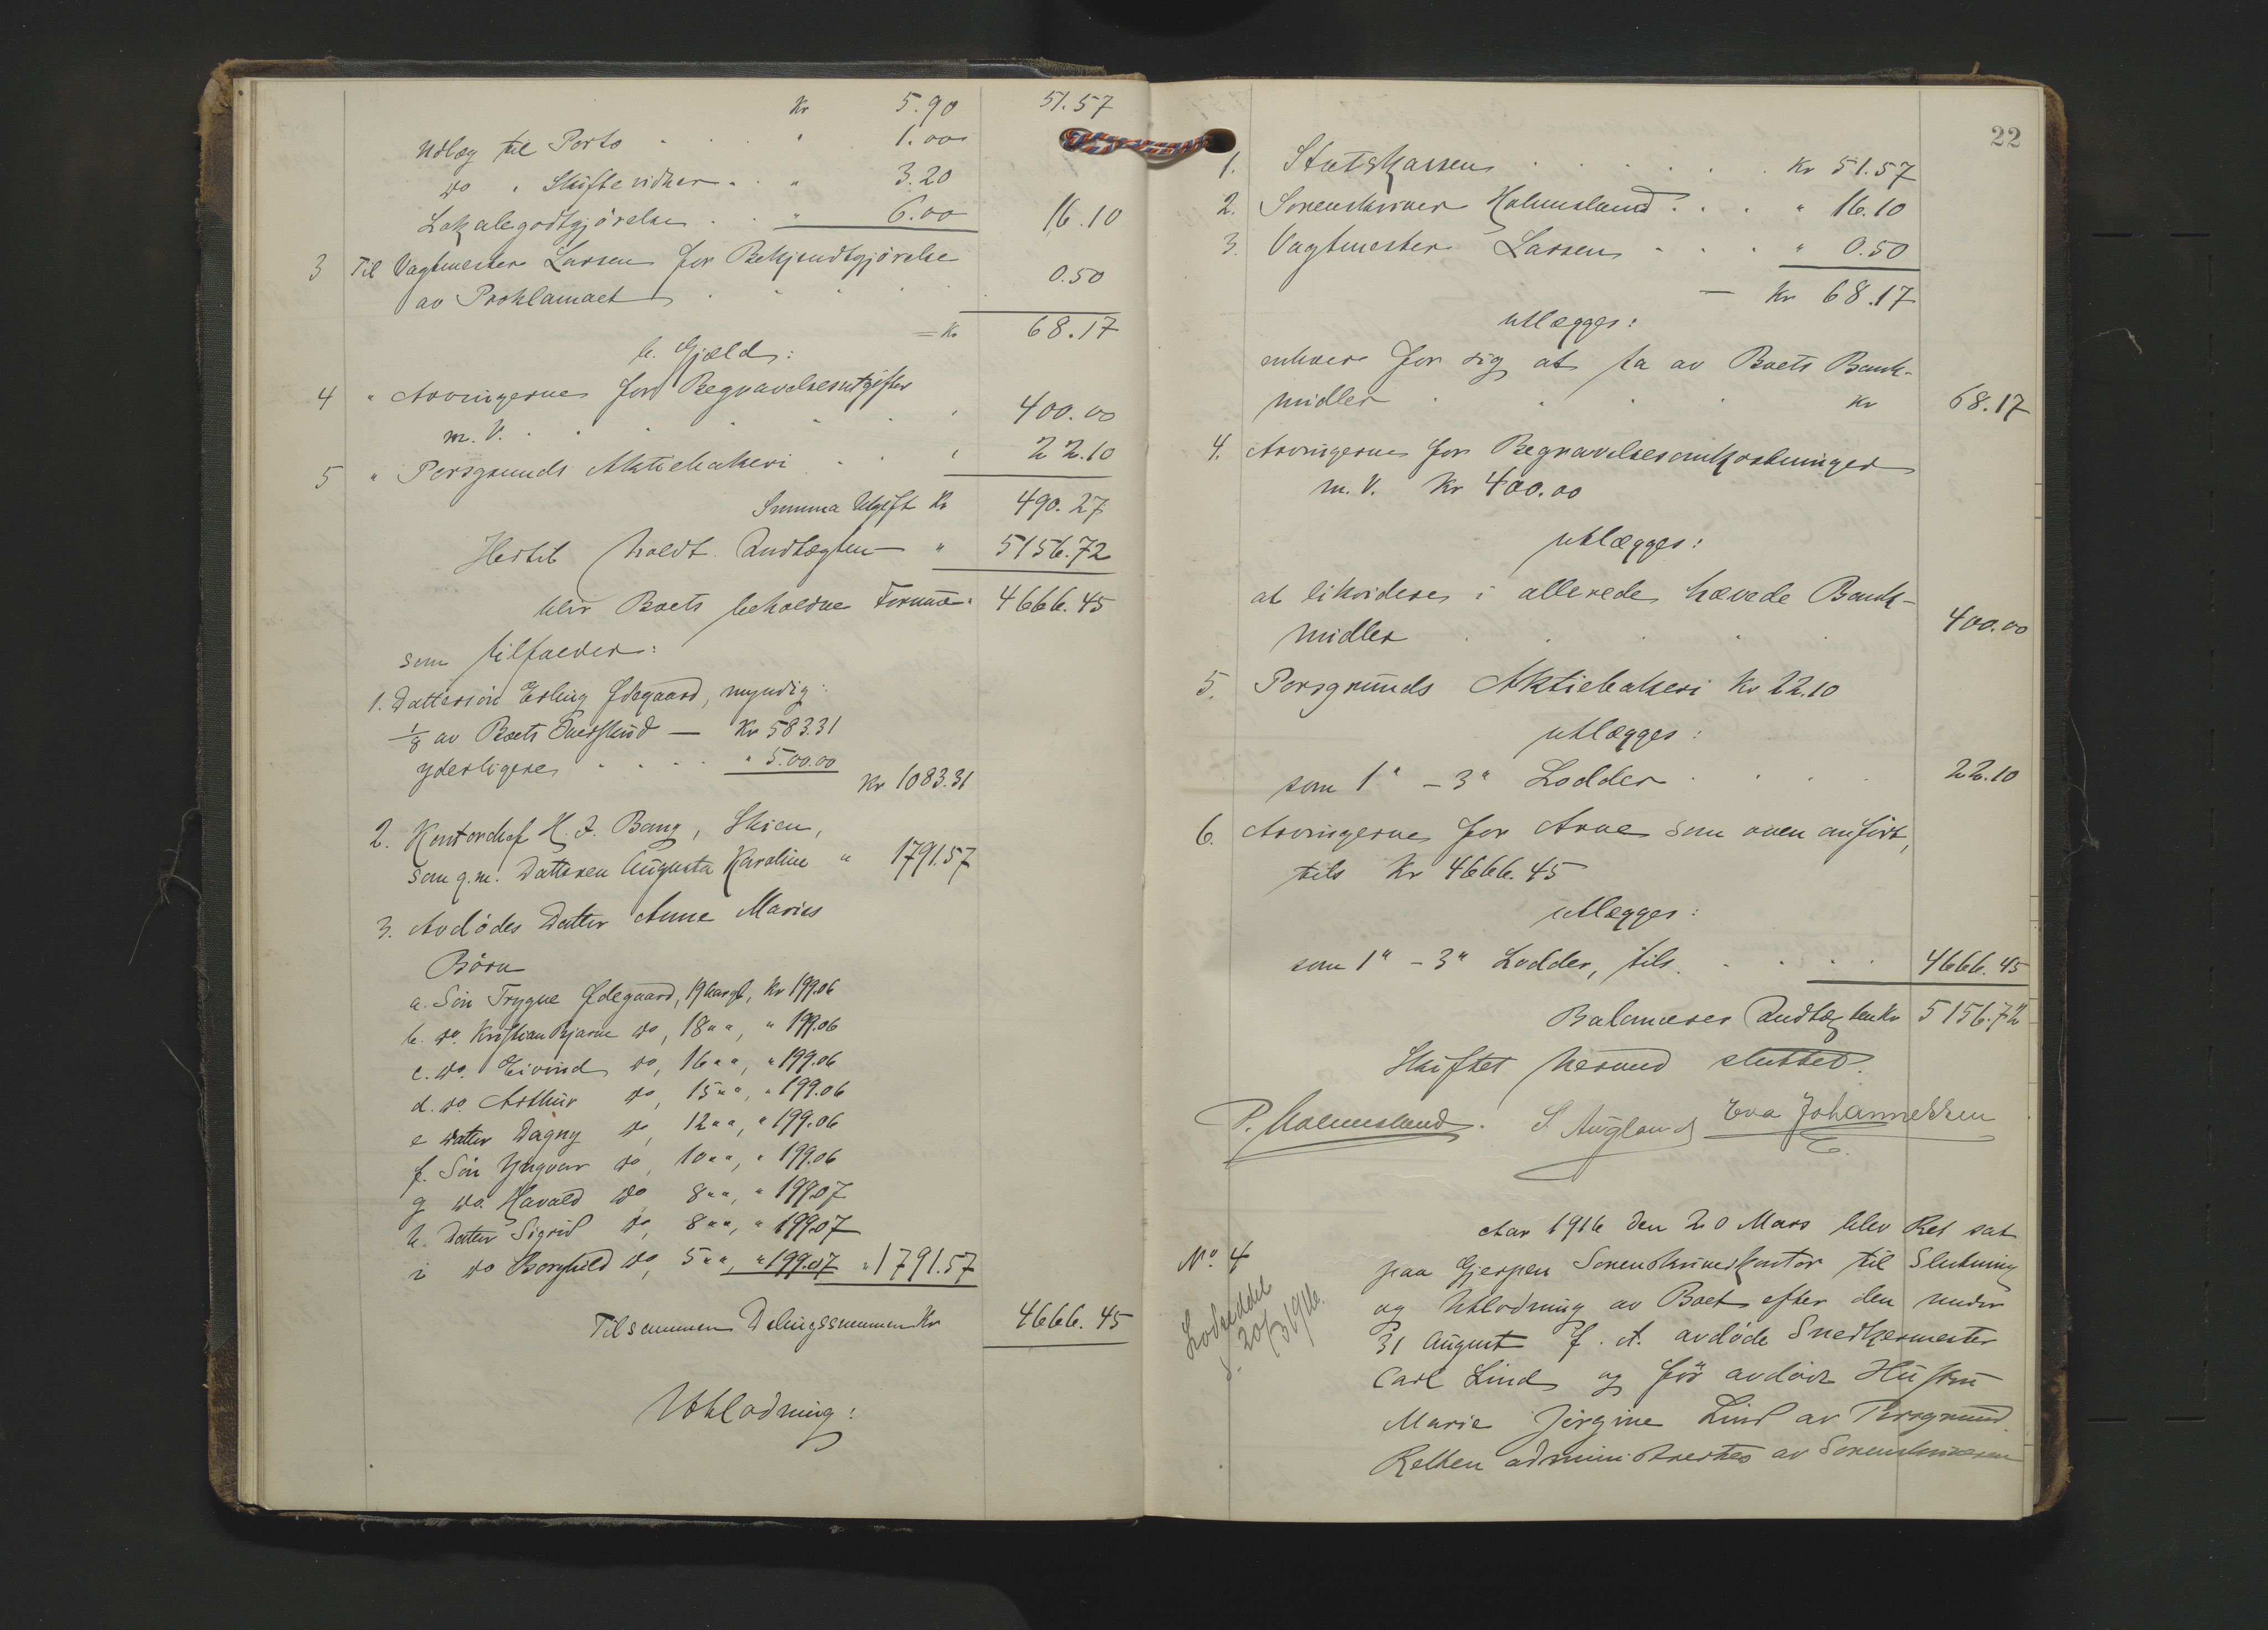 Kr 5.90 51.57
Utlæg til Porto " 1.00
do " Skiftevidner " 3.20
Lokalegodtgjörelse " 6.00 16.10
3 Til Vagtmester Larsen for Bekjendtgjörelse
av Proklamaet 0.50
= Kr 68.17
b. Gjæld:
4 " Arvingerne for Begravelsesutgifter
m. V. " 400.00
5 " Porsgrunds Aktiebakeri " 22.10
Summa Utgift Kr 490.27
Hertil holdt Indtægten " 5156.72
blir Boets beholdne Formue " 4666.45
som tilfalder:
1. Dattersön Erling Ødegaard, myndig:
1/8 av Boets Overskud — Kr 583.31
yderligere " 500.00
Kr 1083.31
2. Kontorchef H. J. Bang, Skien,
som g.m. Datteren Augusta Karoline " 1791.57
3. Avdödes Datter Anne Maries
Börn
a. Sön Trygve Ødegaard, 19 aar gl, Kr 199.06
b. do. Kristian Bjarne do, 18 " ", " 199.06
c. do. Eivind do, 16 " ", " 199.06
d. do. Arthur do, 15 " ", " 199.06
e Datter Dagny do, 12 " ", " 199.06
f. Sön Yngvar do, 10 " ", " 199.06
g do. Havald do, 8 " ", " 199.07
h. Datter Sigrid do, 8 " ", " 199.07
i do Borghild do, 5 " ", " 199.07 " 1791.57
Tilsammen Delingssummen Kr 4666.45
Utlodning:
22
1. Statskassen Kr 51.57
2. Sorenskriver Holmesland " 16.10
3. Vagtmester Larsen " 0.50
— Kr 68.17
utlægges:
enhver for sig at ta av Boets Bank-
midler Kr 68.17
4. Arvingerne for Begravelsesomkostninger
m. V. Kr 400.00
utlægges:
at likvidere i allerede hævede Bank-
midler 400.00
5. Porsgrunds Aktiebakeri Kr 22.10
utlægges:
som 1" – 3" Lodder 22.10
6. Arvingerne for Arve som oven anfört,
tils Kr 4666.45
utlægges:
som 1" – 3" Lodder, tils. 4666.45
Balancerer Indtægten Kr 5156.72
Skiftet herved sluttet.
P. Holmesland. S. Augland Eva Johannessen
No. 4
Lodseddel
d. 20/3 1916.
Aar 1916 den 20 Mars blev Ret sat
paa Gjerpen Sorenskriverkontor til Slutning
og Utlodning av Boet efter den under
31 August f. A. avdöde Snedkermester
Carl Lind og för avdöde Hustru
Marie Jörgine Lind av Porsgrund.
Retten administrertes av Sorenskriveren